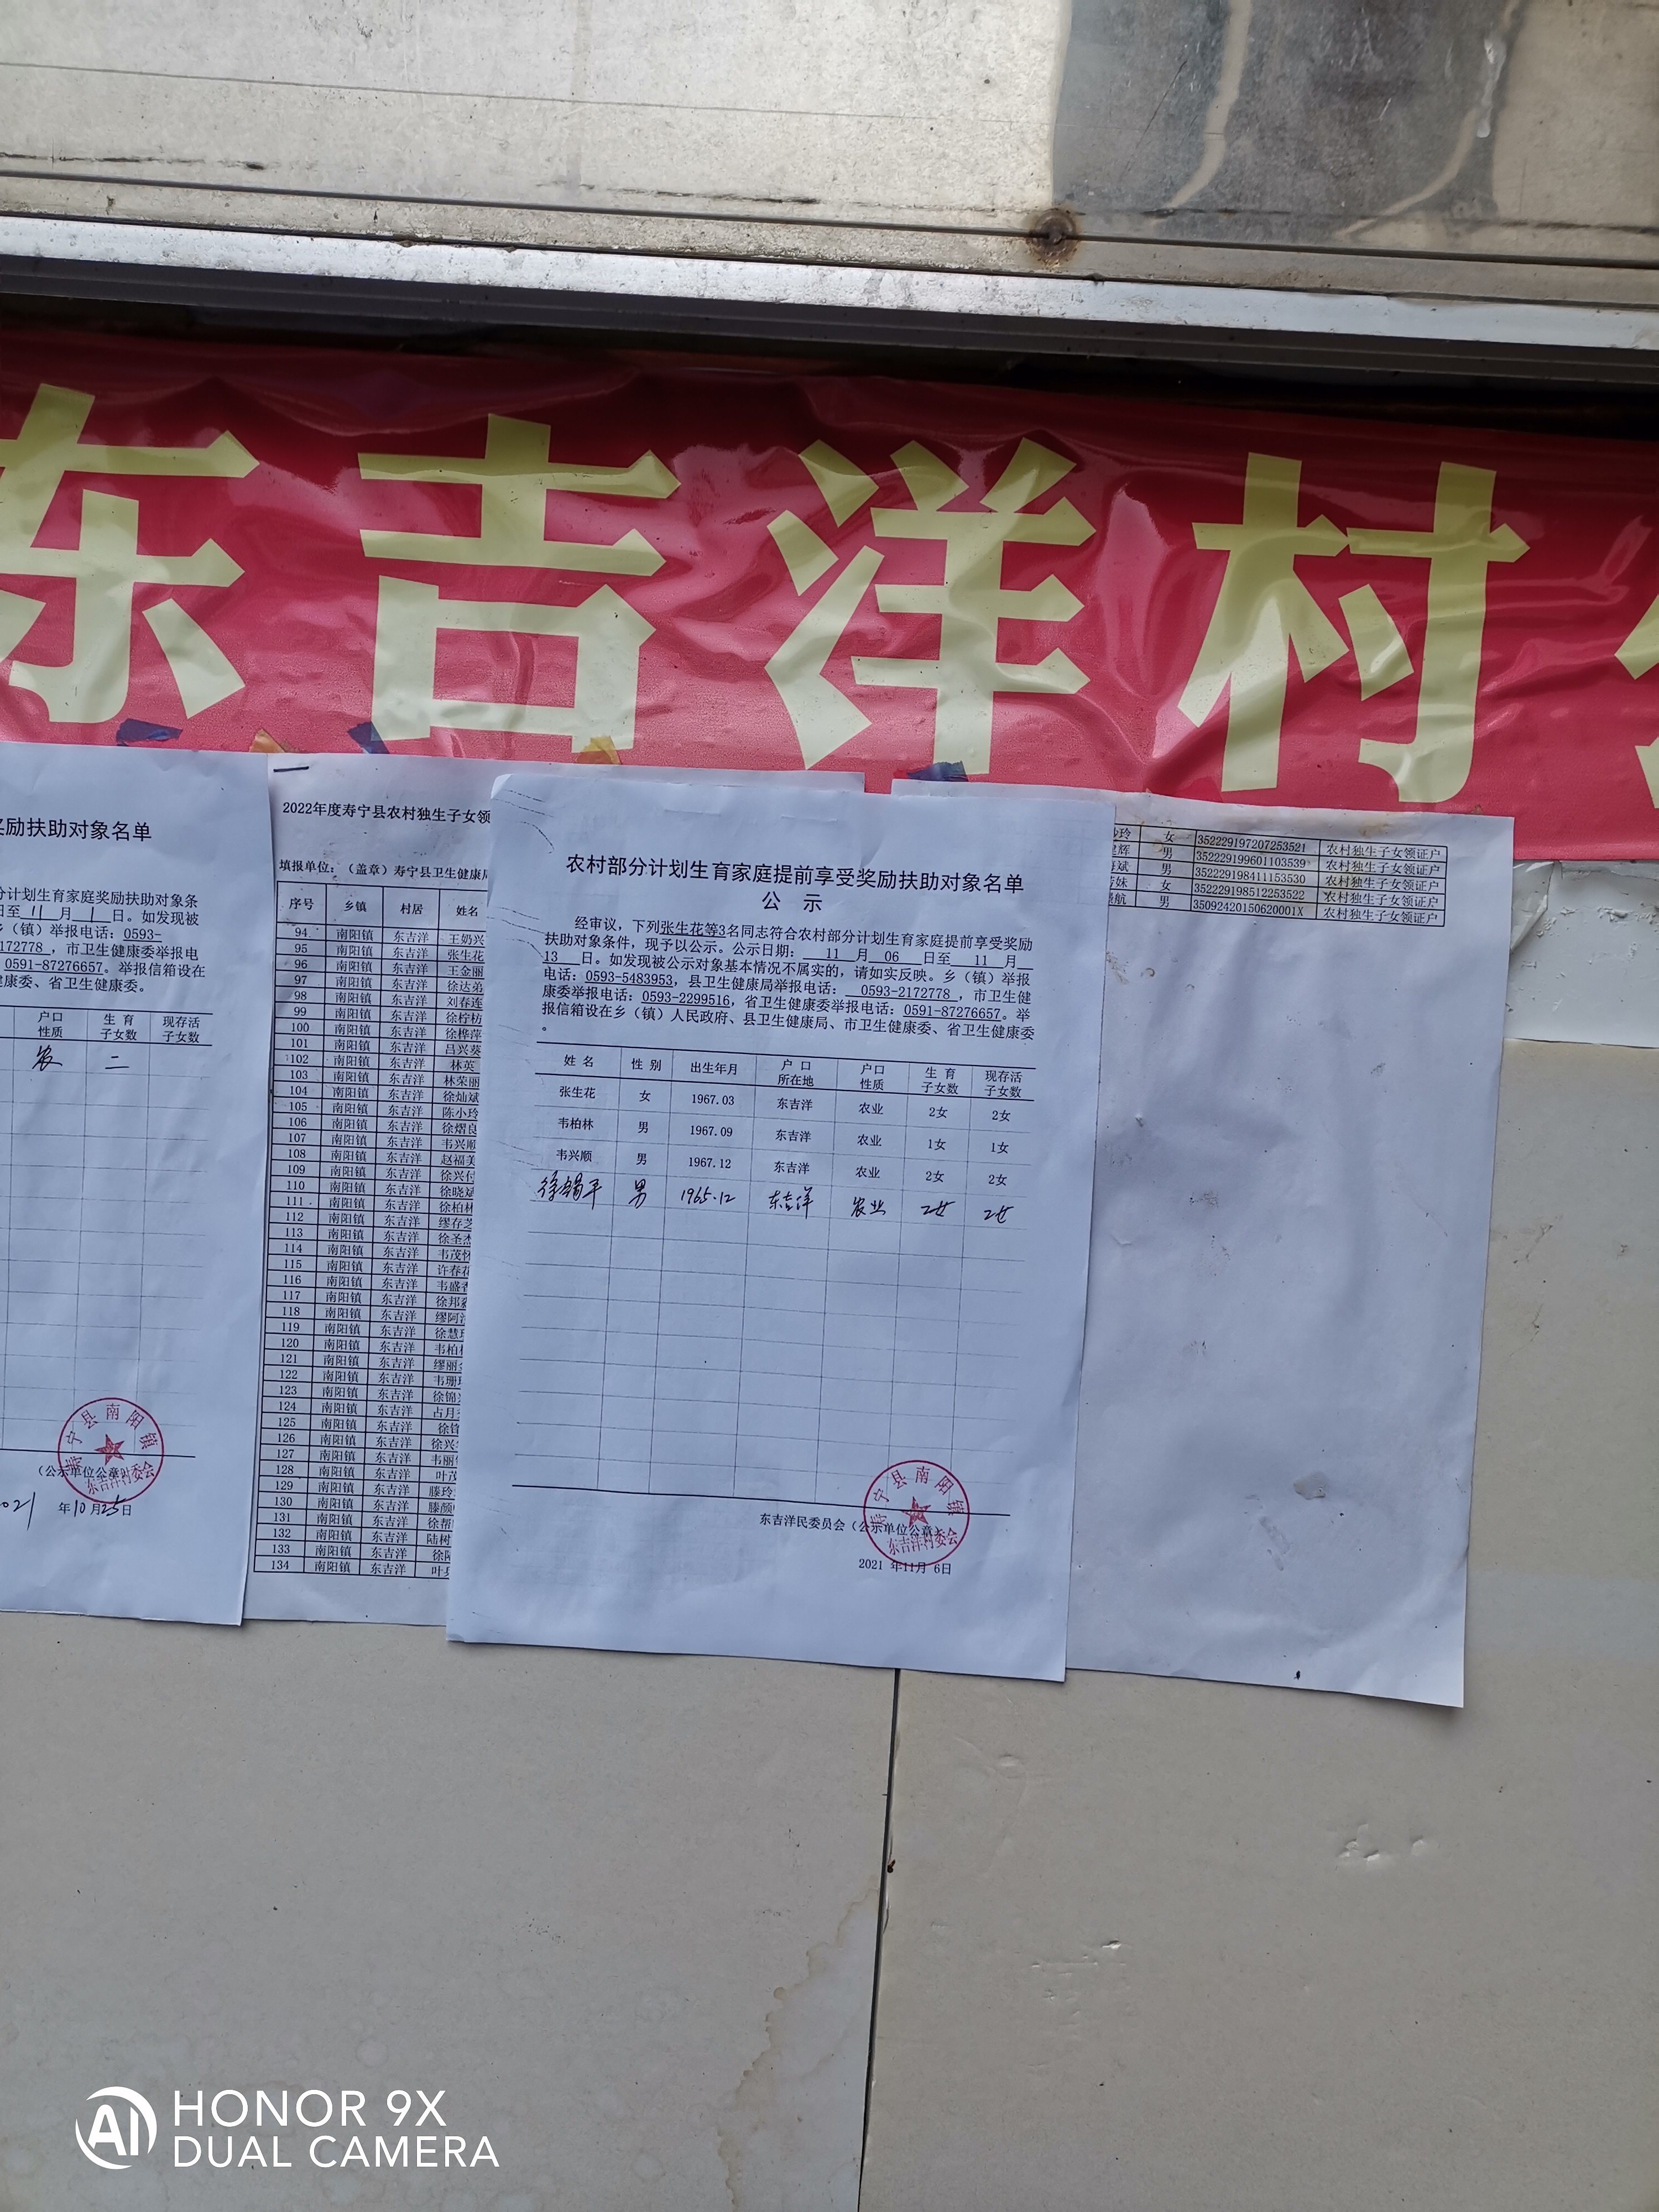 东吉洋村
奖励扶助对象名单
分计划生育家庭奖励扶助对象条
日至 11 月 1 日。如发现被
乡（镇）举报电话：0593-
2172778，市卫生健康委举报电
0591-87276657。举报信箱设在
健康委、省卫生健康委。
户口性质 生育子女数 现存活子女数
农 二
寿宁县南阳镇
（公示单位公章）
东吉洋村委会
2021 年10月25日
2022年度寿宁县农村独生子女领
填报单位：（盖章）寿宁县卫生健康局
序号 乡镇 村居 姓名
94 南阳镇 东吉洋 王奶兴
95 南阳镇 东吉洋 张生花
96 南阳镇 东吉洋 王金丽
97 南阳镇 东吉洋 徐达弟
98 南阳镇 东吉洋 刘春连
99 南阳镇 东吉洋 徐柠枋
100 南阳镇 东吉洋 徐桦萍
101 南阳镇 东吉洋 吕兴葵
102 南阳镇 东吉洋 林英
103 南阳镇 东吉洋 林荣丽
104 南阳镇 东吉洋 徐灿斌
105 南阳镇 东吉洋 陈小玲
106 南阳镇 东吉洋 徐熠良
107 南阳镇 东吉洋 韦兴顺
108 南阳镇 东吉洋 赵福美
109 南阳镇 东吉洋 徐兴付
110 南阳镇 东吉洋 徐晓斌
111 南阳镇 东吉洋 徐柏林
112 南阳镇 东吉洋 缪存芝
113 南阳镇 东吉洋 徐圣杰
114 南阳镇 东吉洋 韦茂怀
115 南阳镇 东吉洋 许春花
116 南阳镇 东吉洋 韦盛
117 南阳镇 东吉洋 徐邦
118 南阳镇 东吉洋 缪阿
119 南阳镇 东吉洋 徐慧
120 南阳镇 东吉洋 韦柏
121 南阳镇 东吉洋 缪丽
122 南阳镇 东吉洋 韦珊
123 南阳镇 东吉洋 徐锦
124 南阳镇 东吉洋 占月
125 南阳镇 东吉洋 徐
126 南阳镇 东吉洋 徐兴
127 南阳镇 东吉洋 韦丽
128 南阳镇 东吉洋 叶茂
129 南阳镇 东吉洋 滕玲
130 南阳镇 东吉洋 滕颜
131 南阳镇 东吉洋 徐帮
132 南阳镇 东吉洋 陆树
133 南阳镇 东吉洋 徐
134 南阳镇 东吉洋 叶
农村部分计划生育家庭提前享受奖励扶助对象名单
公 示
经审议，下列张生花等3名同志符合农村部分计划生育家庭提前享受奖励
扶助对象条件，现予以公示。公示日期： 11 月 06 日至 11 月
13 日。如发现被公示对象基本情况不属实的，请如实反映。乡（镇）举报
电话：0593-5483953，县卫生健康局举报电话： 0593-2172778 ，市卫生健
康委举报电话：0593-2299516，省卫生健康委举报电话：0591-87276657。举
报信箱设在乡（镇）人民政府、县卫生健康局、市卫生健康委、省卫生健康委
。
姓 名 性 别 出生年月 户 口所在地 户口性质 生 育子女数 现存活子女数
张生花 女 1967.03 东吉洋 农业 2女 2女
韦柏林 男 1967.09 东吉洋 农业 1女 1女
韦兴顺 男 1967.12 东吉洋 农业 2女 2女
徐锡平 男 1965.12 东吉洋 农业 2女 2女
寿宁县南阳镇
东吉洋民委员会（公示单位公章）
东吉洋村委会
2021 年11月 6日
玲 女 352229197207253521 农村独生子女领证户
辉 男 352229199601103539 农村独生子女领证户
斌 男 352229198411153530 农村独生子女领证户
妹 女 352229198512253522 农村独生子女领证户
航 男 35092420150620001X 农村独生子女领证户
AI
HONOR 9X
DUAL CAMERA